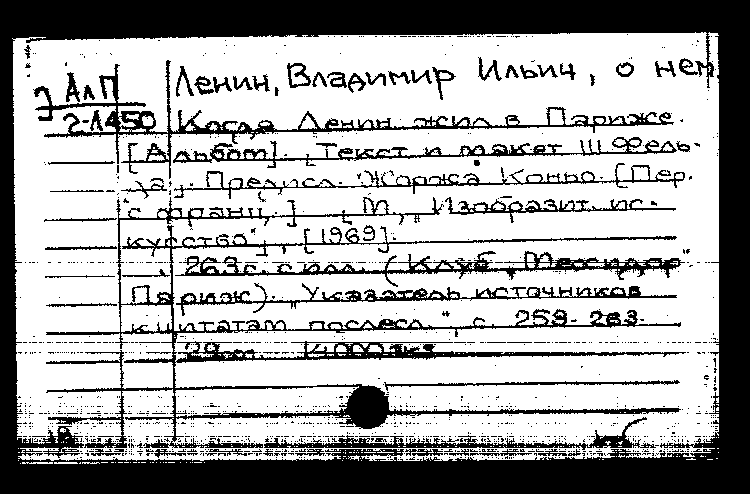 АлП Ленин, Владимир Ильич, о нем
2-1450 Когда Ленин жил в Париже.
[Альбом]. [Текст и макет Ш. Фель-
да]. Предисл. Жоржа Коньо. [Пер.
с франц.] [М., „Изобразит. ис-
кусство"], [1969].
263 с. с илл. (Клуб „Мессидор"
Париж). „Указатель источников
к цитатам послесл.", с. 259-263.
29 см. 14000 экз